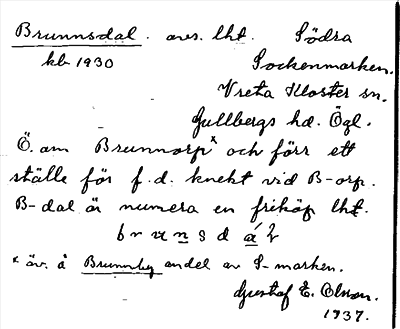 Brunnsdal. avs. lht. Södra
kb 1930 Sockenmarken.
Vreta Kloster sn.
Gullbergs hd. Ögl.
Ö. om Brunnorp* och förr ett
ställe för f.d. knekt vid B-orp.
B-dal är numera en friköp lht.
brunsdál
* äv. å Brunnby andel av S-marken.
Gustaf E. Olson.
1937.